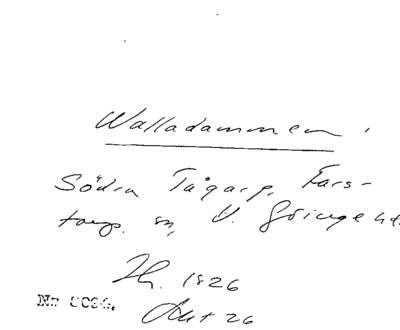 Walladammen.
Södra Tågarp, Fars-
torps sn, V. Göinge hd.
1826
Akt 26